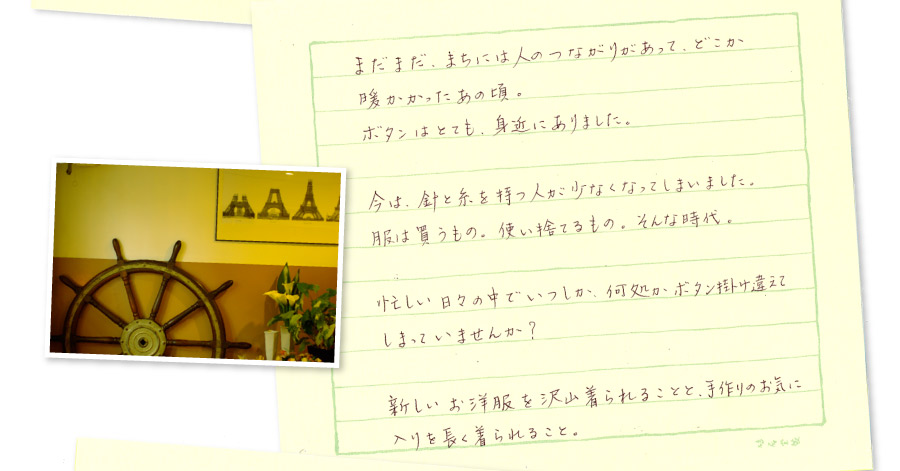 まだまだ、まちには人のつながりがあって、どこか
暖かかったあの頃。
ボタンはとても、身近にありました。
今は、針と糸を持つ人が少なくなってしまいました。
服は買うもの。使い捨てるもの。そんな時代。
忙しい日々の中でいつしか、何処かボタン掛け違えて
しまっていませんか？
新しいお洋服を沢山着られることと、手作りのお気に
入りを長く着られること。